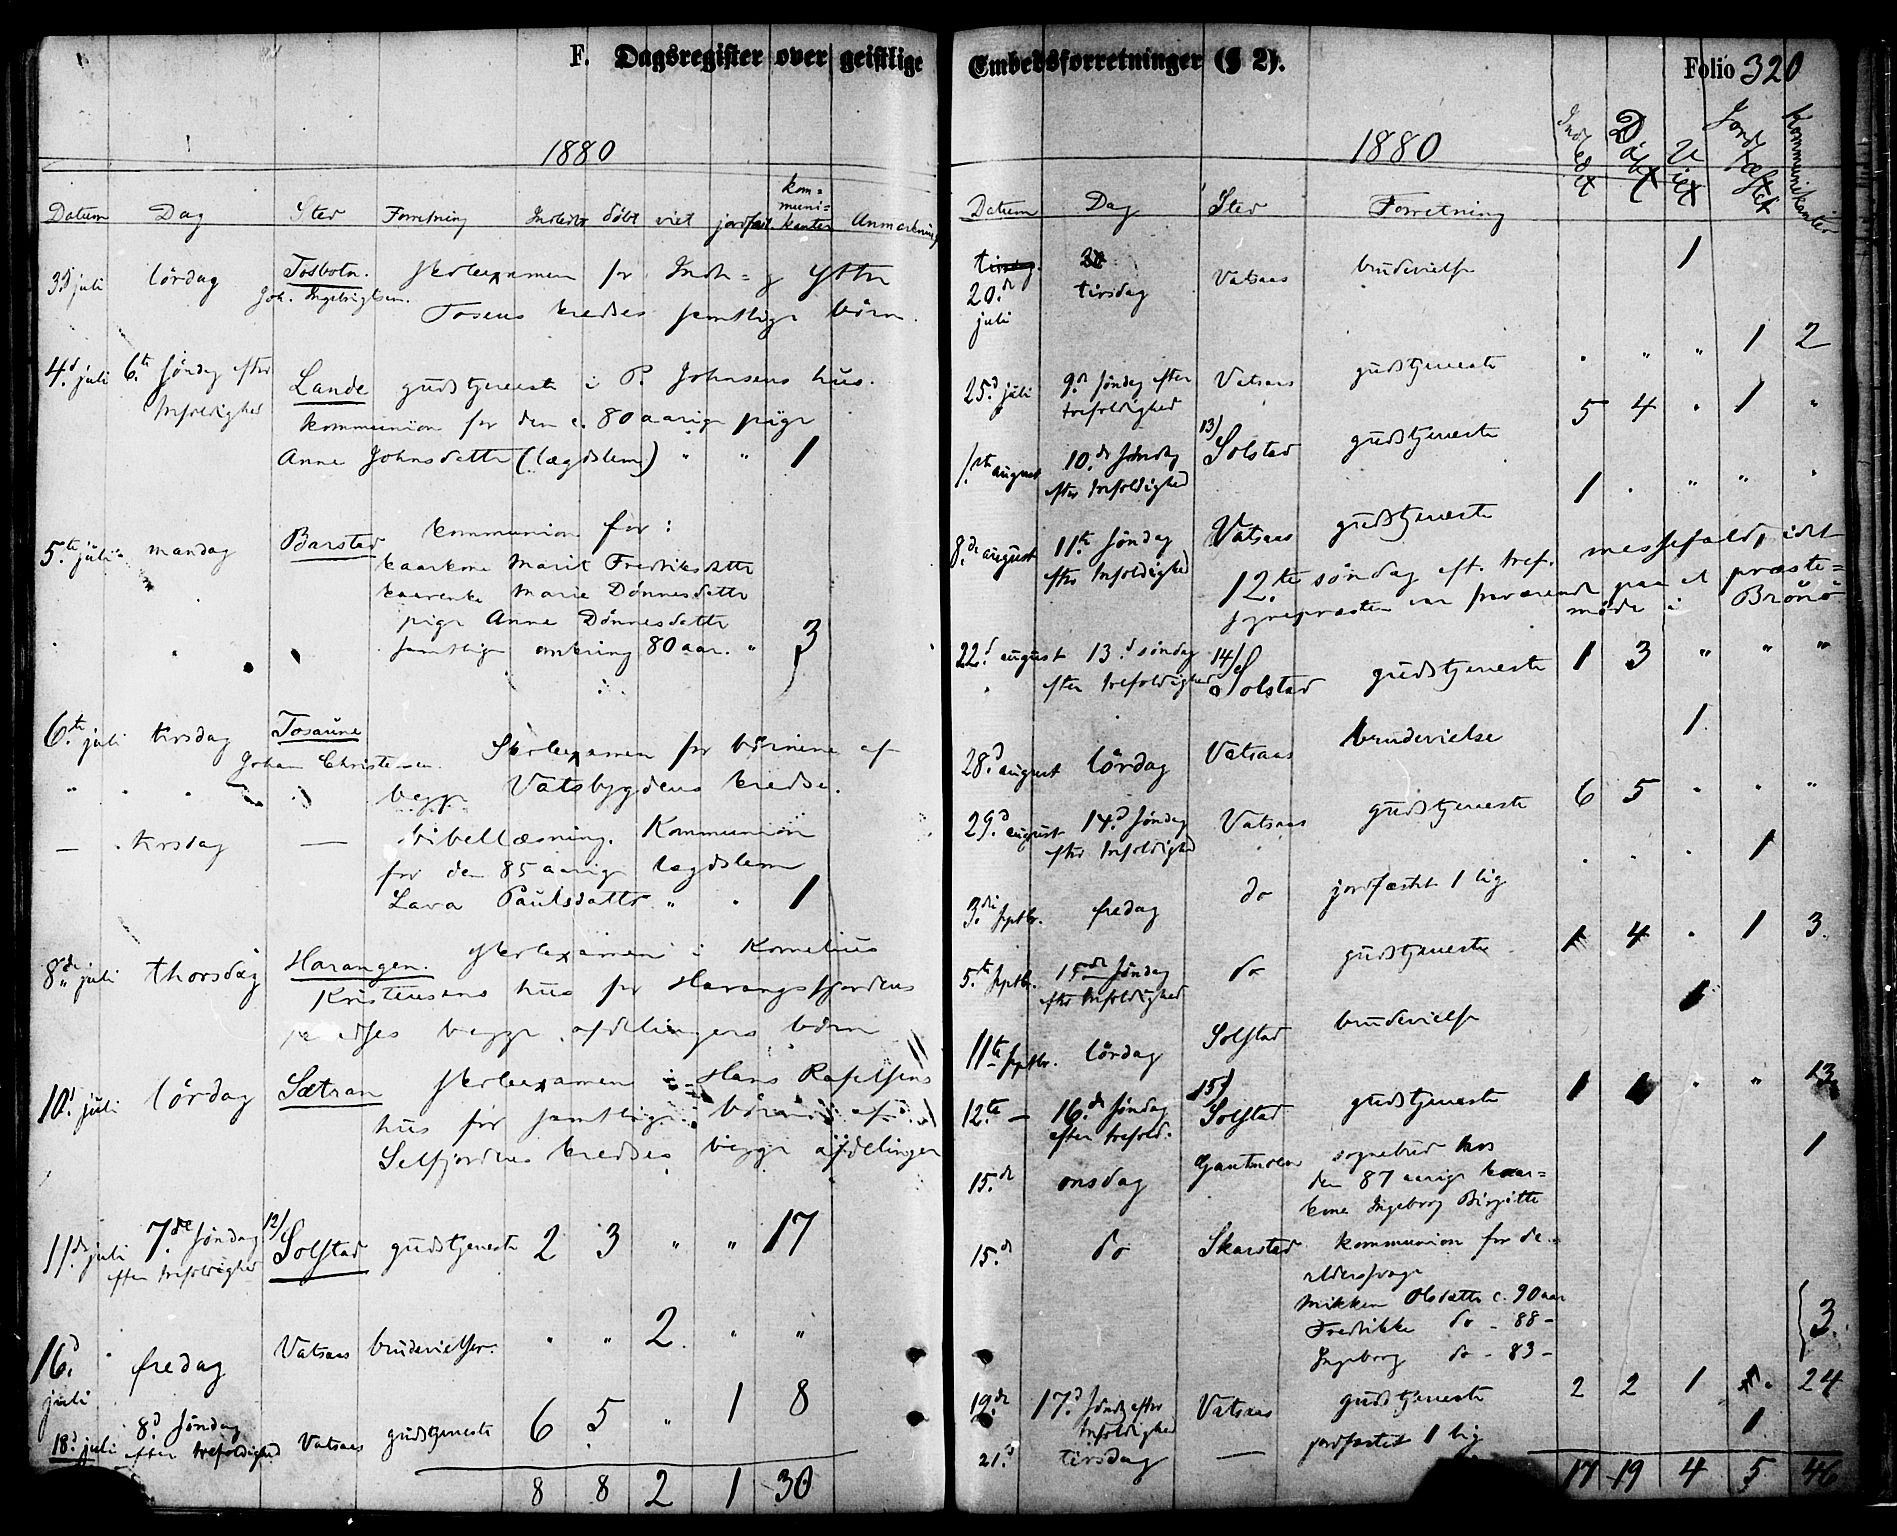 F. Dagsregister over geistlige
1880
Datum Dag Sted Forretning Indledet døbt viet jordfæst. kom=muni=kanter Anmærkning
3d juli lördag Tosbotn. Skolexamen for Indr= g Yttre
Joh. Ingebrigtsen. Tosens kredses samtlige börn.
4.d juli 6.te søndag efter trefoldighed Lande gudstjeneste i P. Johnsens hus.
kommunion for den c. 80 aarige pige
Anne Johnsdatter (lægdslem) " " 1
5.te juli mandag Barstad kommunion for:
kaarkone Marit Fredriksdatter
kaarenke Marie Dönnesdatter
pige Anne Dönnesdatter
samtlige omkring 80 aar. " 3
6.te juli tirsdag Tosaune Skolexamen for börnene af
Johan Christensen. begge Vatsbygdens kredse.
— tirsdag — bibellæsning. Kommunion
for den 85 aarige lægdslem
Lava Paulsdatter " " 1
8.de juli thorsdag Harangen Skolexamen i Kornelius
Kristensens hus for Harangsfjordens
kredses begge afdelingers börn
10.d juli lördag Sætran Skolexamen i Hans Rafelsens
hus for samtlige börn af
Selfjordens kredses begge afdelinger
11.d juli 7.de søndag efter trefoldighed 12) Solstad gudstjeneste 2 3 " " 17
16.d juli fredag Vatsaas brudevielser. " " 2. " "
18.d juli 8.d søndag efter trefoldighed Vatsaas gudstjeneste 6 5 " 1 8
8 8 2 1 30
Embedsforretninger (§ 2).
Folio 320
1880
Datum Dag Sted Forretning Indledet Døbt Viet Jordfæstet Kommunikanter
20.de juli tirsdag Vatsaas brudevielse 1
25.d juli 9.d søndag efter trefoldighed Vatsaas gudstjeneste " " " 1 2
1.ste august 10.de søndag efter trefoldighed 13) Solstad gudstjeneste 5 4 " 1 "
8.de august 11.te søndag efter trefoldighed Vatsaas gudstjeneste 1 " " " "
12.te søndag eft. tref. messefald, idet
sognepræsten var fraværende paa et præste=
møde i Brönö
22.d august 13.d søndag efter trefoldighed 14) Solstad gudstjeneste 1 3 " " "
28.d august lördag Vatsaas brudevielse 1.
29.d august 14.d søndag efter trefoldighed Vatsaas gudstjeneste 6 5 " " "
3.die septbr. fredag do jordfæstet 1 lig " " " 1
5.te septbr. 15.de søndag efter trefoldighed do gudstjeneste 1 4 " 1 3.
11.te septbr. lördag Solstad brudevielse 1
12.te — 16.de søndag efter trefold. 15) Solstad gudstjeneste 1 1 " " 13
15.de onsdag sognebud hos 1
den 87 aarige kaar=
kone Ingeborg Birgitte
15.de do Skarstad kommunion for de
aldersvage
Mikken Olsdatter c. 90 aar
Fredrikke do - 88 -
Ingeborg do - 83 - 3.
19.de 17.d sønd. efter trefoldighed Vatsaas gudstjeneste 2 2 1 " 24
21.d tirsdag — jordfæstet 1 lig 1
17 19 4 5 46